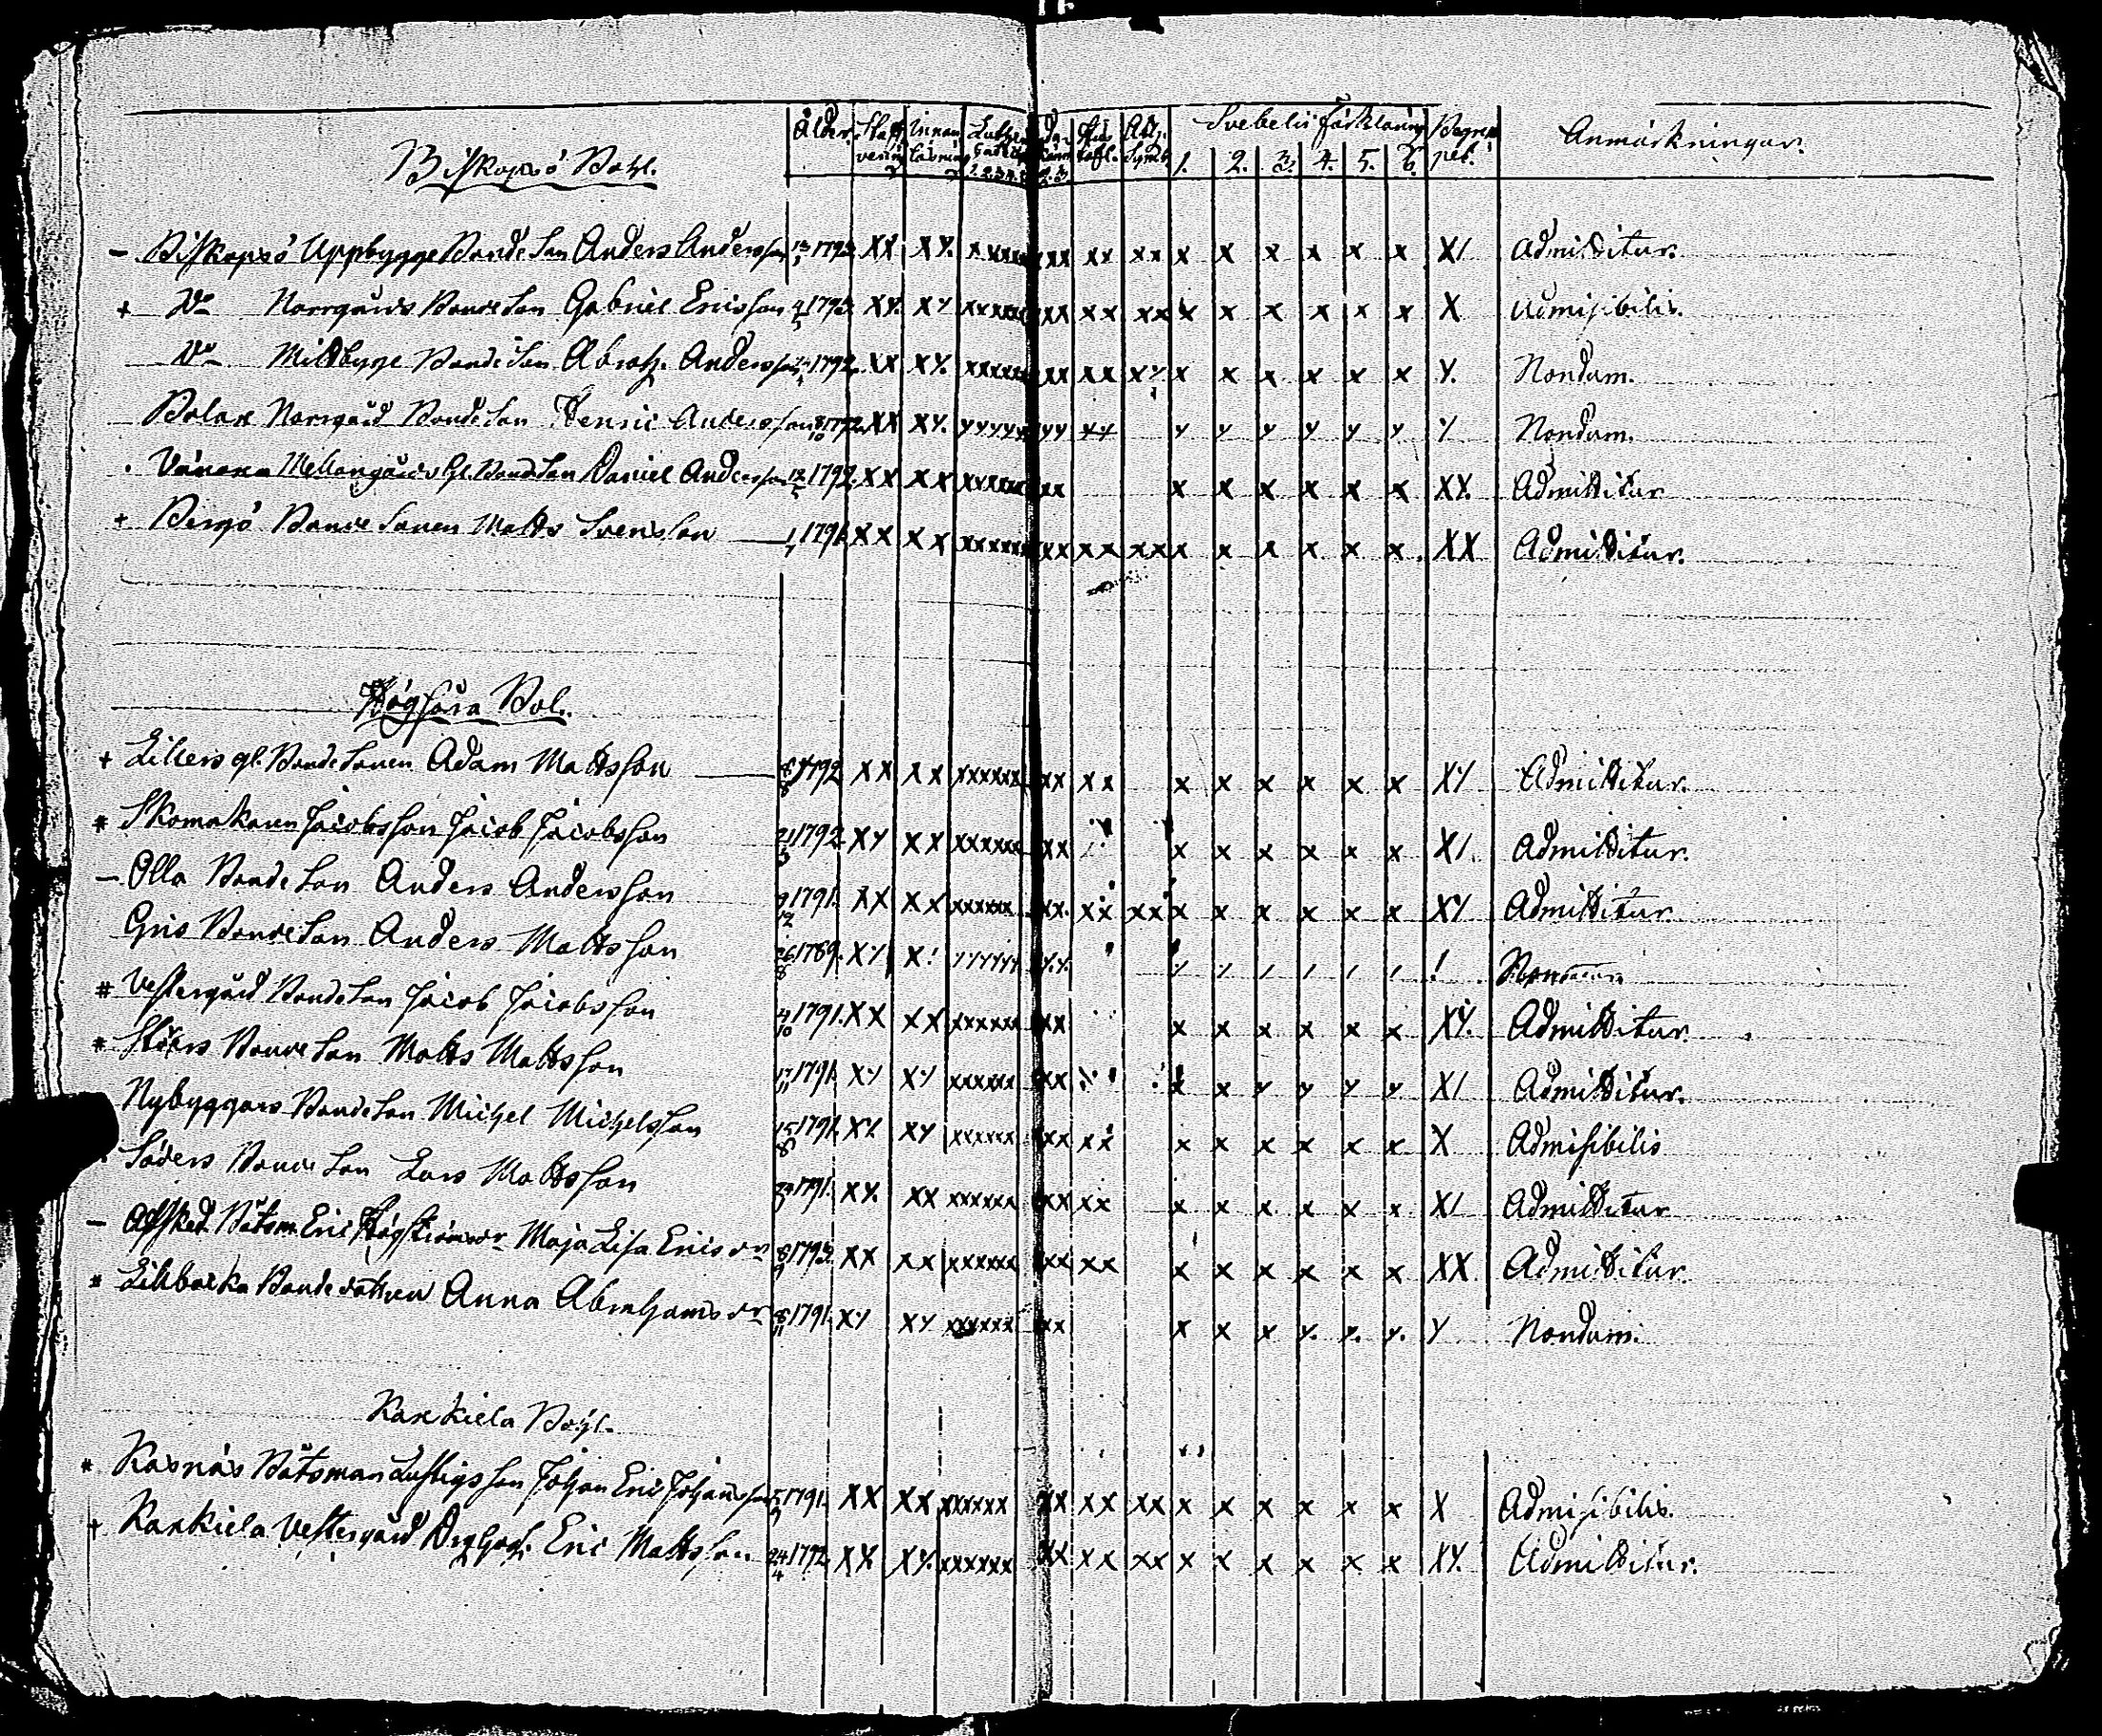 Ålder. Staf vering Innan läsning Luthe. Da. Hus tafl. Ath. Symb. Svebelii förklaring Begrep pet. Anmärkningar.
1. 2. 3. 4. 5. 1. 2. 3. 4. 5. 6.
Biskopsö Bohl.
– Biskopsö Uppbygge Bonde Son Anders Andersson 1793. XX XX. xxxxx xxx xx xx x x x x x x X/ Admittitur.
+ Do Norrgårds Bonde Son Gabriel Ericsson 1793. XX. XY xxxxxx xxx xx xx x x x x x x X Admissibilis.
Do Mellbygge Bonde Son Abrah. Andersson 1792. XX XY. xxxxxx xx xx xy x x x x x x Y. Nondum.
Bolax Norrgård Bonde Son Henric Andersson 1792. XX XY. yyyyyy yy yy y y y y y y y Nondum.
. Vänoxa Mellangårds Gl. Bonde Son Daniel Andersson 12/5 1792. XX XX xxxxxx xx x x x x x x XX. Admittitur
+ Bergö Bonde Sonen Matts Svensson 1791. XX XX xxxxxx xx xx xx x x x x x x XX Admittitur.
Högsåra Bol.
+ Lillers gl. Bonde Sonen Adam Mattsson 1792 XX XX xxxxxx xx xx x x x x x x XY Admittitur.
# Skomakaren Jacobsson Jacob Jacobsson 21 1792 XY XX xxxxxx xx x x x x x x X/. Admittitur.
– Olla Bonde Son Anders Andersson 9/12 1791. XX XX xxxxxx xx. xx xx x x x x x x XY Admittitur
Gris Bonde Son Anders Mattsson 26/8 1789. XY X! yyyyyy y.y. / / / / / / !
# Vestergård Bonde Son Jacob Jacobsson 4/10 1791. XX XX xxxxxx xx x x x x x x XY. Admittitur.
# Bonde Son Matts Mattsson 17/11 1791 XY XY xxxxxx xx x x y y y y X/ Admittitur.
Nybyggars Bonde Son Michel Michelsson 15/8 1791. XX XY xxxxxx xxx xx x x x x x x X Admissibilis
Söders Bonde Son Lars Mattsson 1791. XY. XX xxxxxx xxx xx x x x x x x X/ Admittitur
– Afsked. Båtsm. Eric Högströms dr Maja Lisa Erics dr 1793. XX XX xxxxxx xx xx x x x x x x XX. Admittitur.
# Lillbacka Bonde dottren Anna Abrahams dr 8/11 1791. XY XY xxxxxx xx x x x y. y. y. Y Nondum.
Karkiela Bohl.
#. Kasnäs Båtsman Lustigs Son Johan Eric Johansson 1791. XX XX xxxxxx xx xx xx x x x x x x X Admissibilis.
+ Karkiela Vestergård Eric Mattsson 24/4 1792. XX. XY. xxxxxx xx xx xx x x x x x x XY. Admittitur.